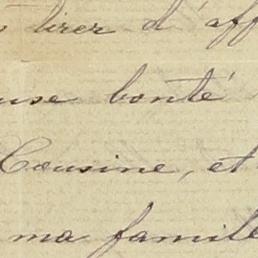 tirer d'aff
use bonté
Cousine, et
ma famille